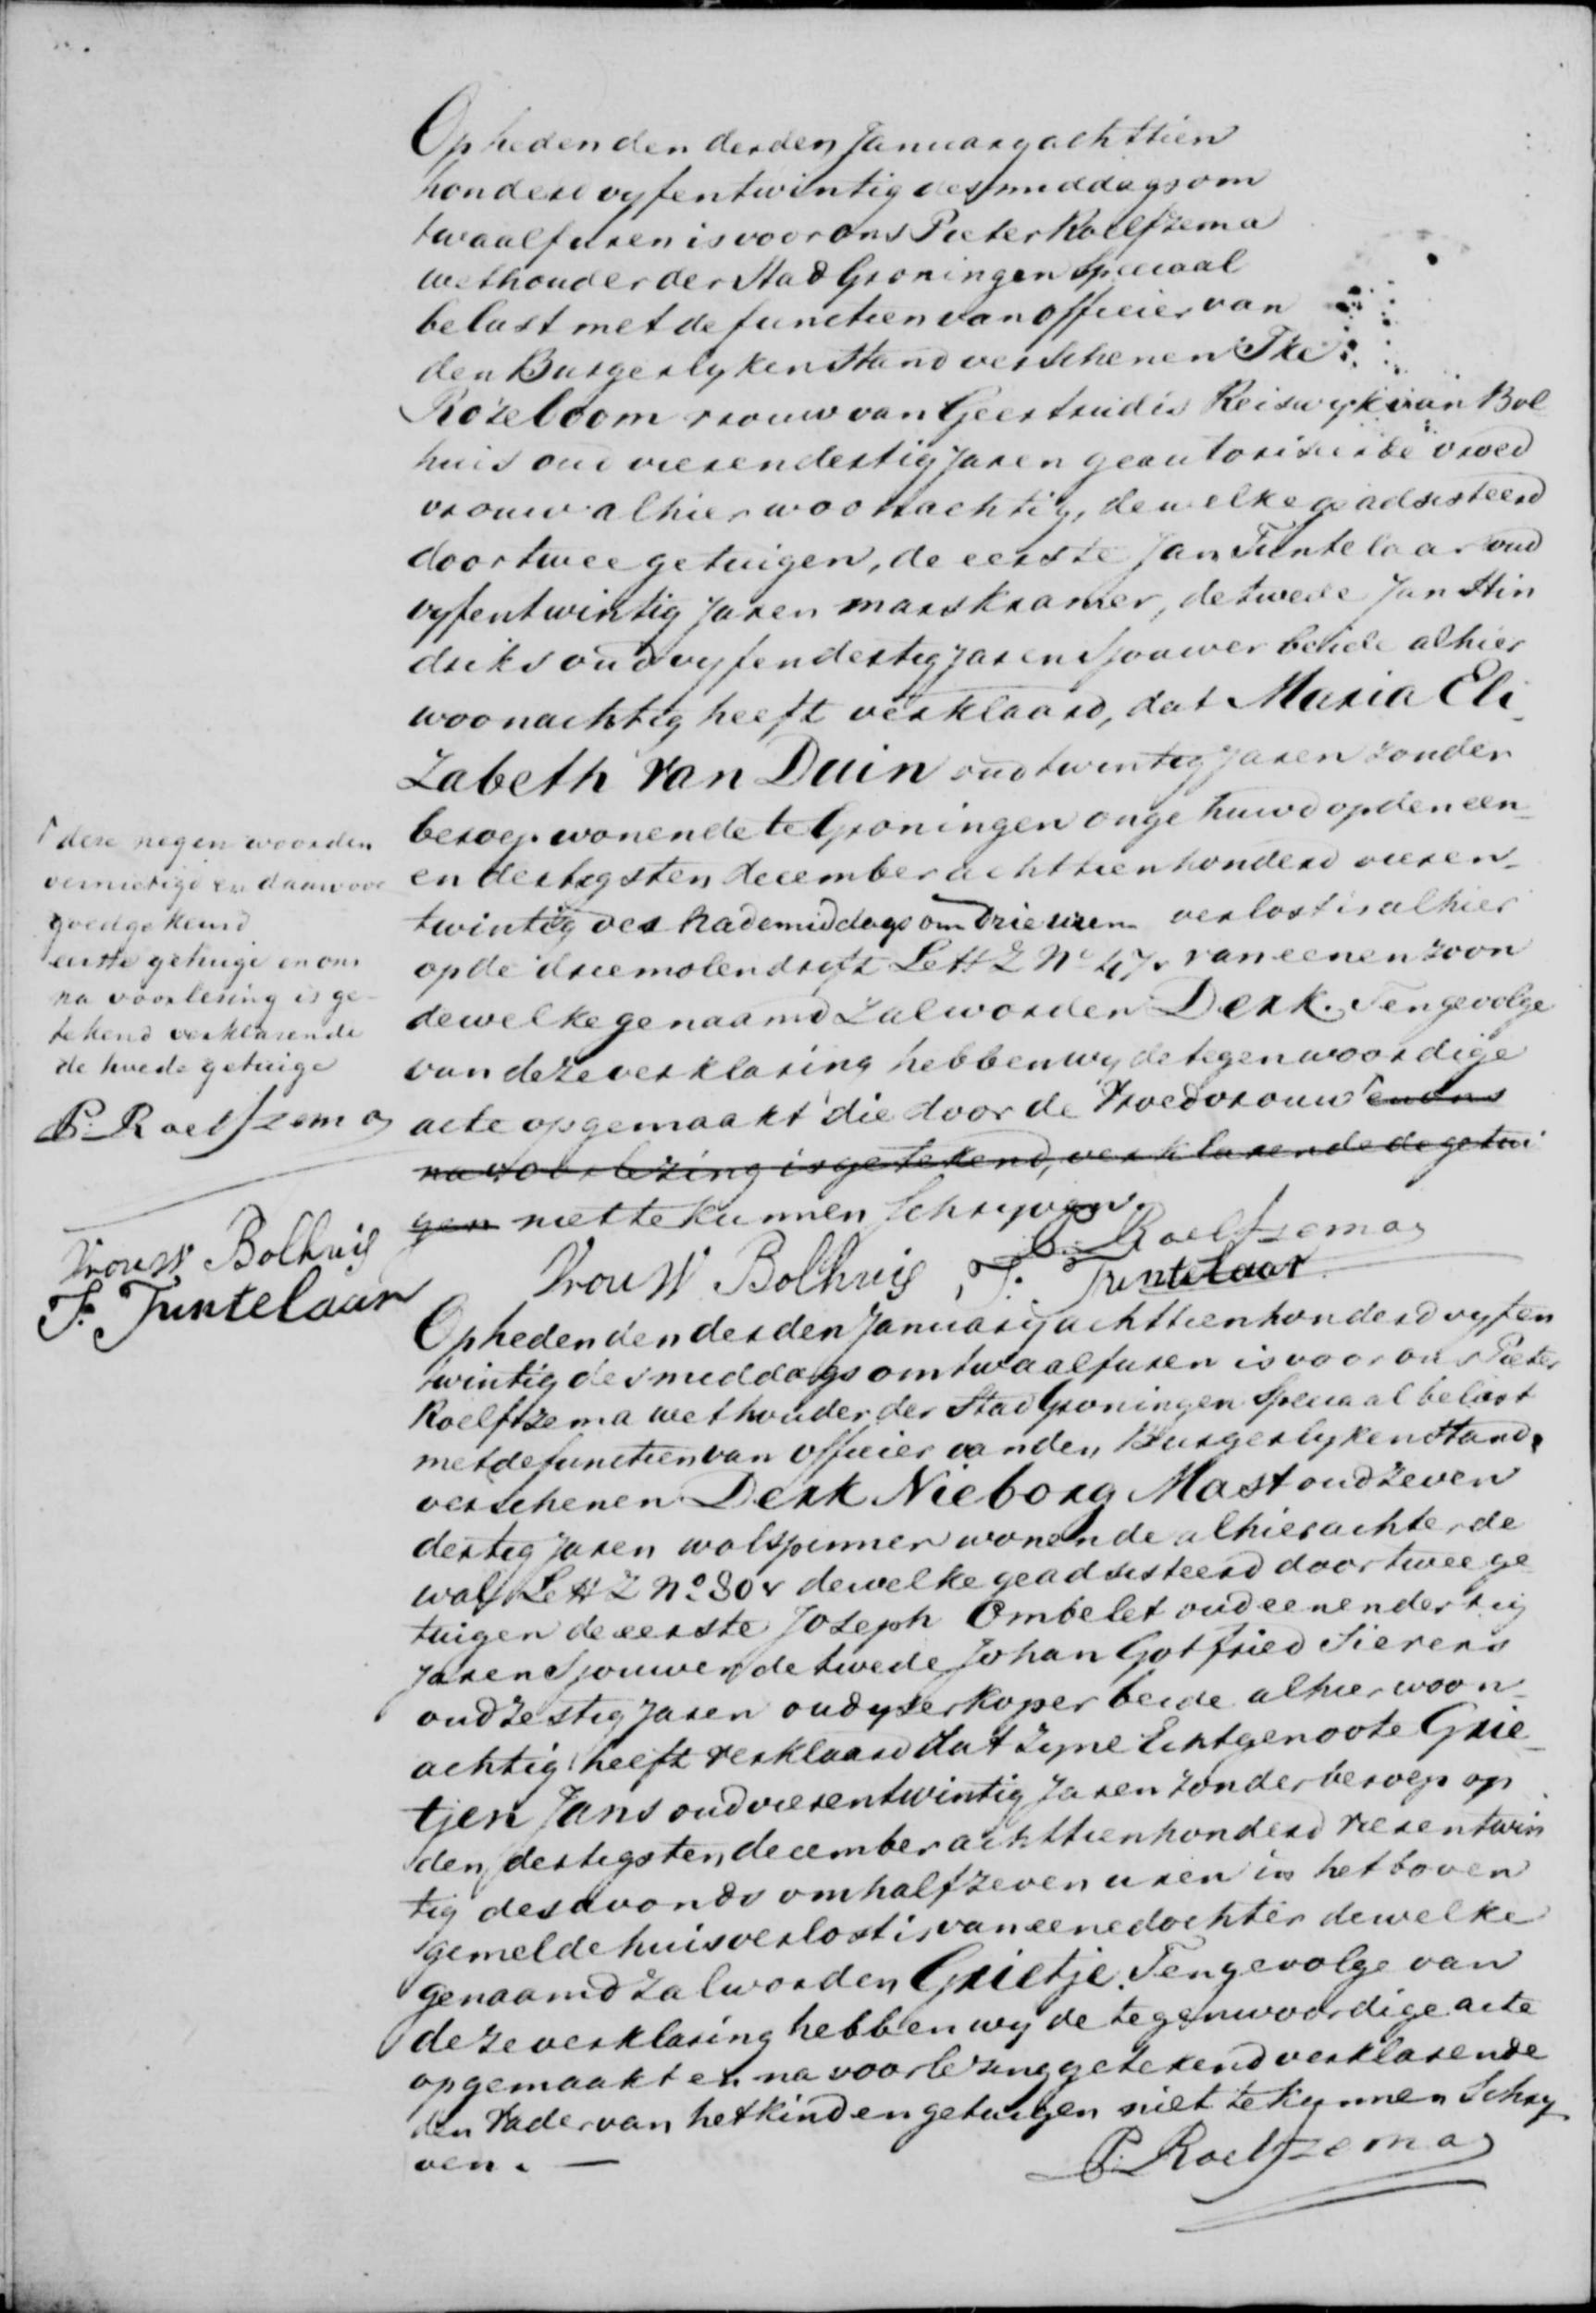 Op heden den derden January achttien
honderd vyfentwintig des middags om
twaalf uren is voor ons Pieter Roelfzema
wethouder der Stad Groningen Speciaal
belast met de functien van officier van
den Burgerlyken Stand verschenen Tke
Rozeboom vrouw van Geertrudis Reiswyk van Bol
huis oud vierendertig Jaren geautoriseerde vroed
vrouw alhier woonachtig, dewelke geadsisteerd
door twee getuigen, de eerste Jan Tuntelaar oud
vyfentwintig Jaren marskramer, de twede Jan Hin
driks oud vyfendertig Jaren Sjouwer beide alhier
woonachtig heeft verklaard, dat Maria Eli
zabeth van Duin oud twintig Jaren zonder
beroep wonende te Groningen ongehuwd op den een
en dertigsten december achttienhonderd vieren
twintig des Nademiddags om drie uren verlost is alhier
op de driemolendrift Lett Z No 47. van eenen zoon
dewelke genaamd zal worden Derk. Tengevolge
van deze verklaring hebben wy de tegenwoordige
acte opgemaakt die door de Vroedvrouw en ons
na voorlezing is getekend, verklarende de getui
gen niet te kunnen Schryven.
P. Roelfzema
Vrouw Bolhuis J. Tuntelaar
deze negen woorden
vernietigd en daarvoor
goedgekeurd
eerste getuige en ons
na voorlezing is ge-
tekend verklarende
de twede getuige
P. Roelfzema
Vrouw Bolhuis
J. Tuntelaar
Op heden den derden January achttienhonderd vyfen
twintig des middags om twaalf uren is voor ons Pieter
Roelfzema wethouder der Stad Groningen Speciaal belast
met de functien van officier van den Burgerlyken Stand
verschenen Derk Nieborg Mast oud zeven
dertig Jaren wolspinner wonende alhier achter de
wal Lett Z No 80 dewelke geadsisteerd door twee ge
tuigen de eerste Joseph Ombelet oud eenendertig
Jaren Sjouwer de twede Johan Gotfried Sievers
oud zestig Jaren oudyserkoper beide alhier woon-
achtig heeft verklaard dat zyne Echtgenoote Grie-
tjen Jans oud vierentwintig Jaren zonder beroep op
den dertigsten december achttienhonderd vierentwin
tig des avonds om half zeven uren in het boven
gemelde huis verlost is van eene dochter dewelke
genaamd zal worden Grietje. Tengevolge van
deze verklaring hebben wy de tegenwoordige acte
opgemaakt en na voorlezing getekend verklarende
den Vader van het kind en getuigen niet te kunnen Schry
ven. —
P. Roelfzema